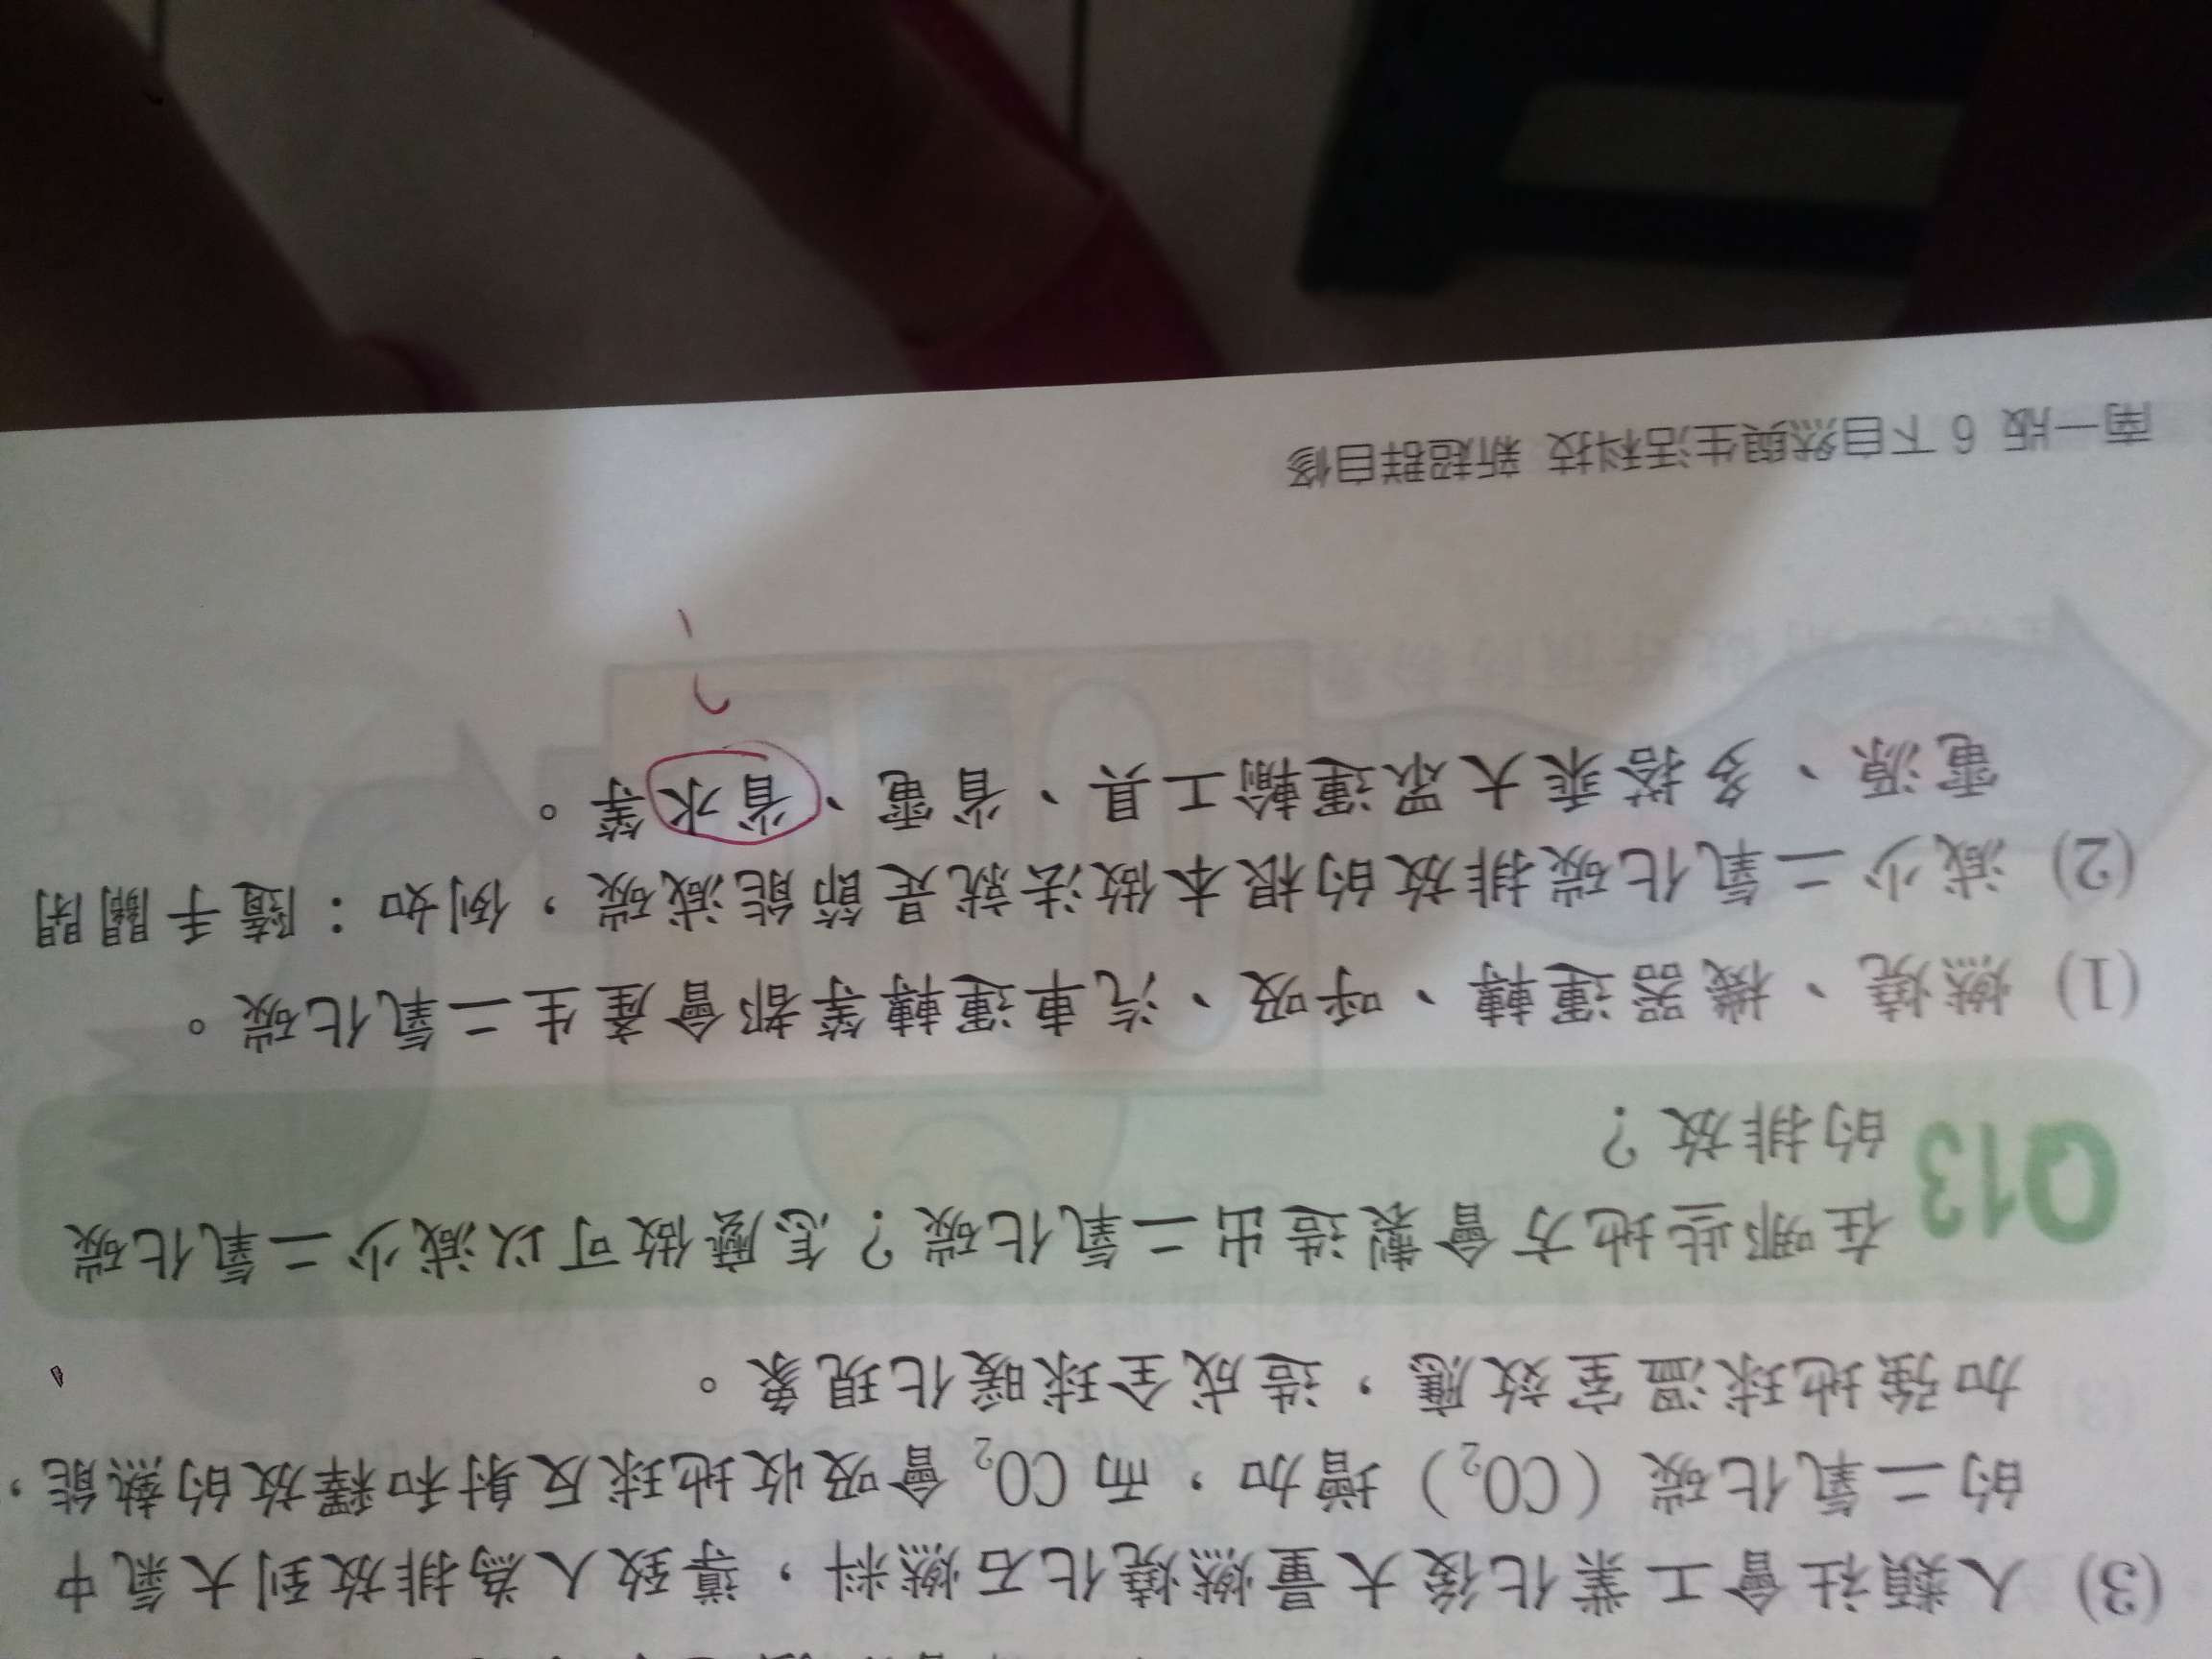 (3) 人類社會工業化後大量燃燒化石燃料，導致人為排放到大氣中
的二氧化碳（CO₂）增加，而 CO₂ 會吸收地球反射和釋放的熱能，
加強地球溫室效應，造成全球暖化現象。
Q13 在哪些地方會製造出二氧化碳？怎麼做可以減少二氧化碳
的排放？
(1) 燃燒、機器運轉、呼吸、汽車運轉等都會產生二氧化碳。
(2) 減少二氧化碳排放的根本做法就是節能減碳，例如：隨手關閉
電源、多搭乘大眾運輸工具、省電、省水等。
?
南一版 6 下自然與生活科技 新超群自修